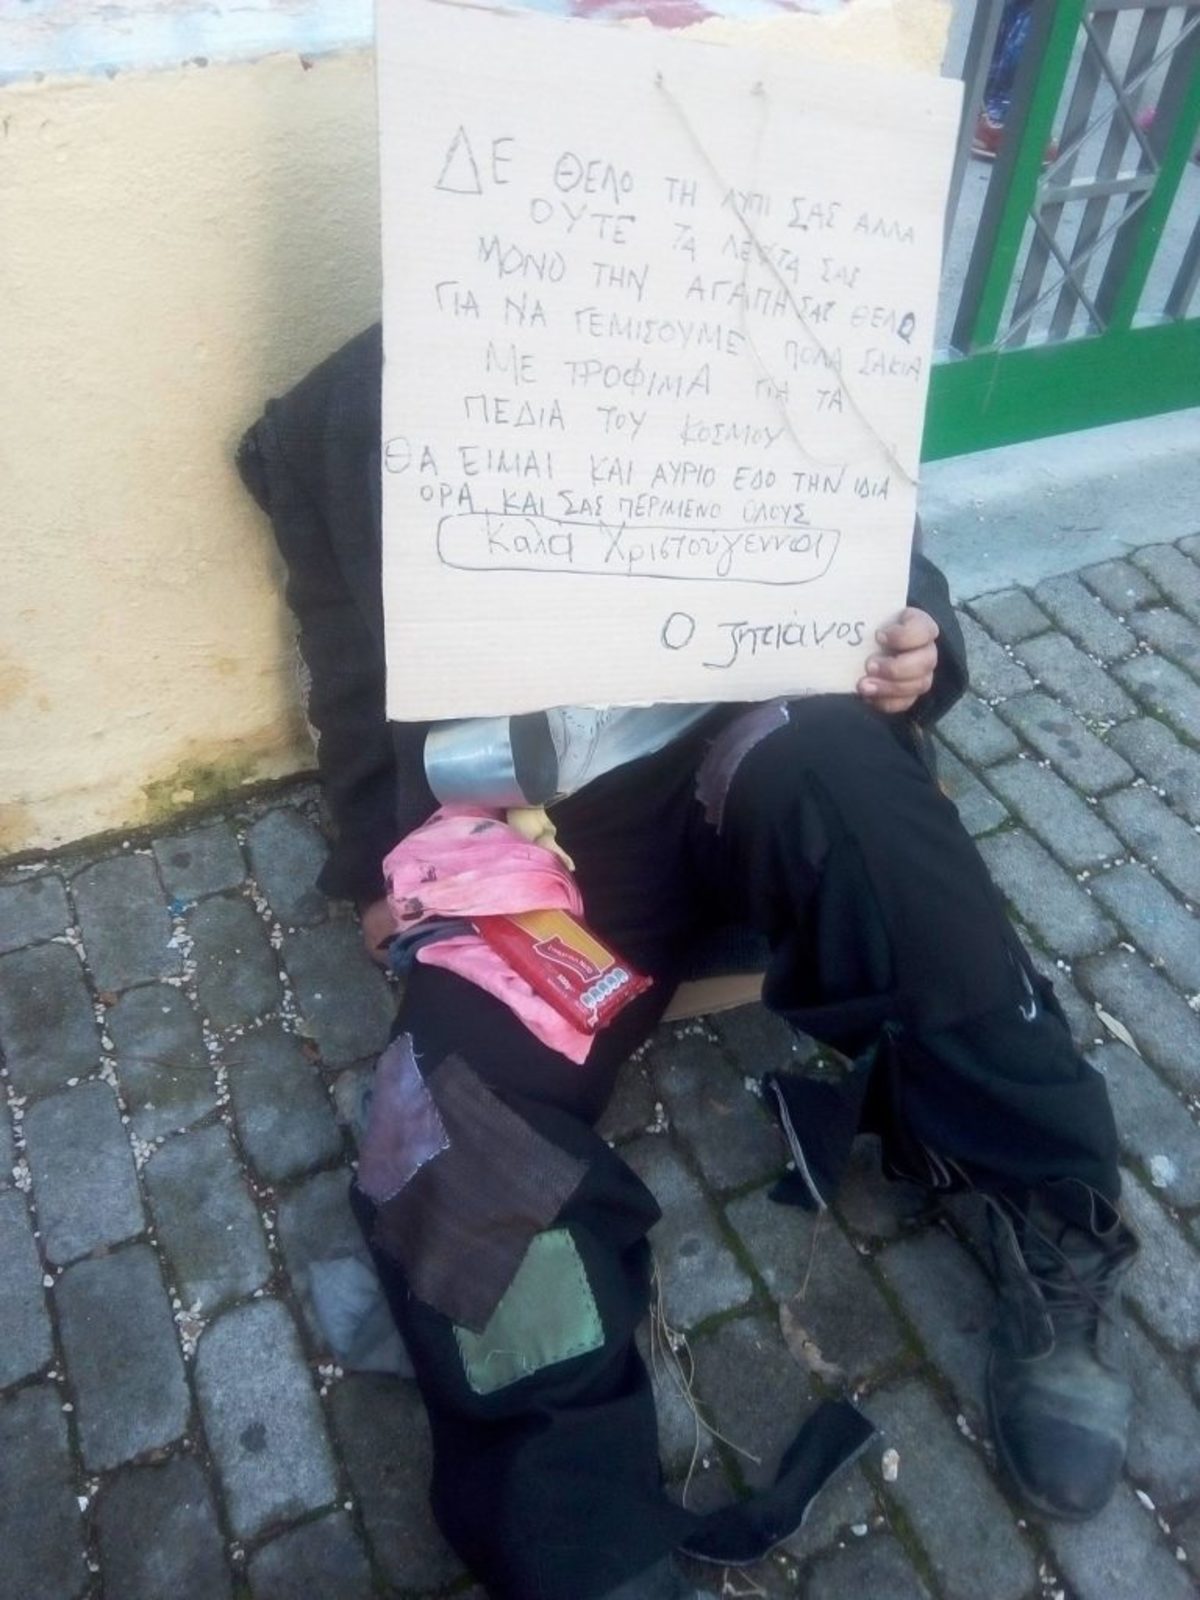 ΔΕ ΘΕΛΟ ΤΗ ΛΥΠΙ ΣΑΣ ΑΛΛΑ
ΟΥΤΕ ΤΑ ΛΕΦΤΑ ΣΑΣ
ΜΟΝΟ ΤΗΝ ΑΓΑΠΗ ΣΑΣ ΘΕΛΩ
ΓΙΑ ΝΑ ΓΕΜΙΣΟΥΜΕ ΠΟΛΑ ΣΑΚΙΑ
ΜΕ ΤΡΟΦΙΜΑ ΓΙΑ ΤΑ
ΠΕΔΙΑ ΤΟΥ ΚΟΣΜΟΥ
ΘΑ ΕΙΜΑΙ ΚΑΙ ΑΥΡΙΟ ΕΔΟ ΤΗΝ ΙΔΙΑ
ΟΡΑ ΚΑΙ ΣΑΣ ΠΕΡΙΜΕΝΟ ΟΛΟΥΣ
Καλά Χριστούγεννα
Ο ζητιάνος